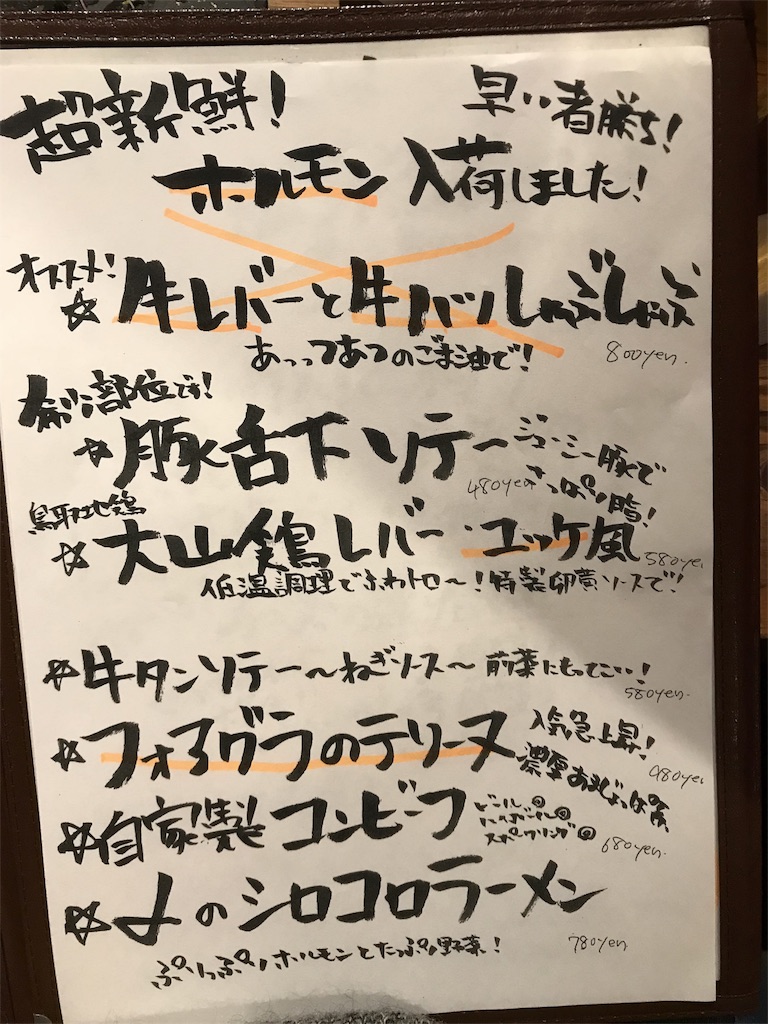 超新鮮!
早い者勝ち!
ホルモン 入荷しました!
オススメ!
☆牛レバーと牛ハツしゃぶしゃぶ
あっつあつのごま油で! 800yen.
部位です!
☆豚舌下ソテー ジューシー豚で
480yen さっぱり脂!
鳥取地鶏
☆大山鶏レバーユッケ風 580yen
低温調理でふわトロ〜!特製卵黄ソースで!
☆牛タンソテー〜ねぎソース〜 前菜にもってこい!
580yen.
☆フォアグラのテリーヌ 人気急上昇!
濃厚あまじょっぱ 980yen
☆自家製コンビーフ ビール◎
ハイボール◎
スパークリング◎ 680yen.
☆〆のシロコロラーメン
780yen
ぷりっぷりホルモンとたっぷり野菜!